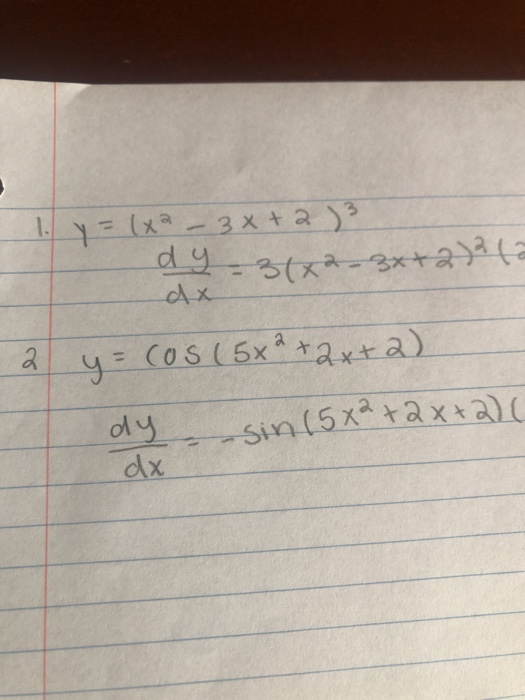 1. y = (x² - 3x + 2)³
dy/dx = 3(x² - 3x + 2)² (2
2 y = cos(5x² + 2x + 2)
dy/dx = -sin(5x² + 2x + 2)(